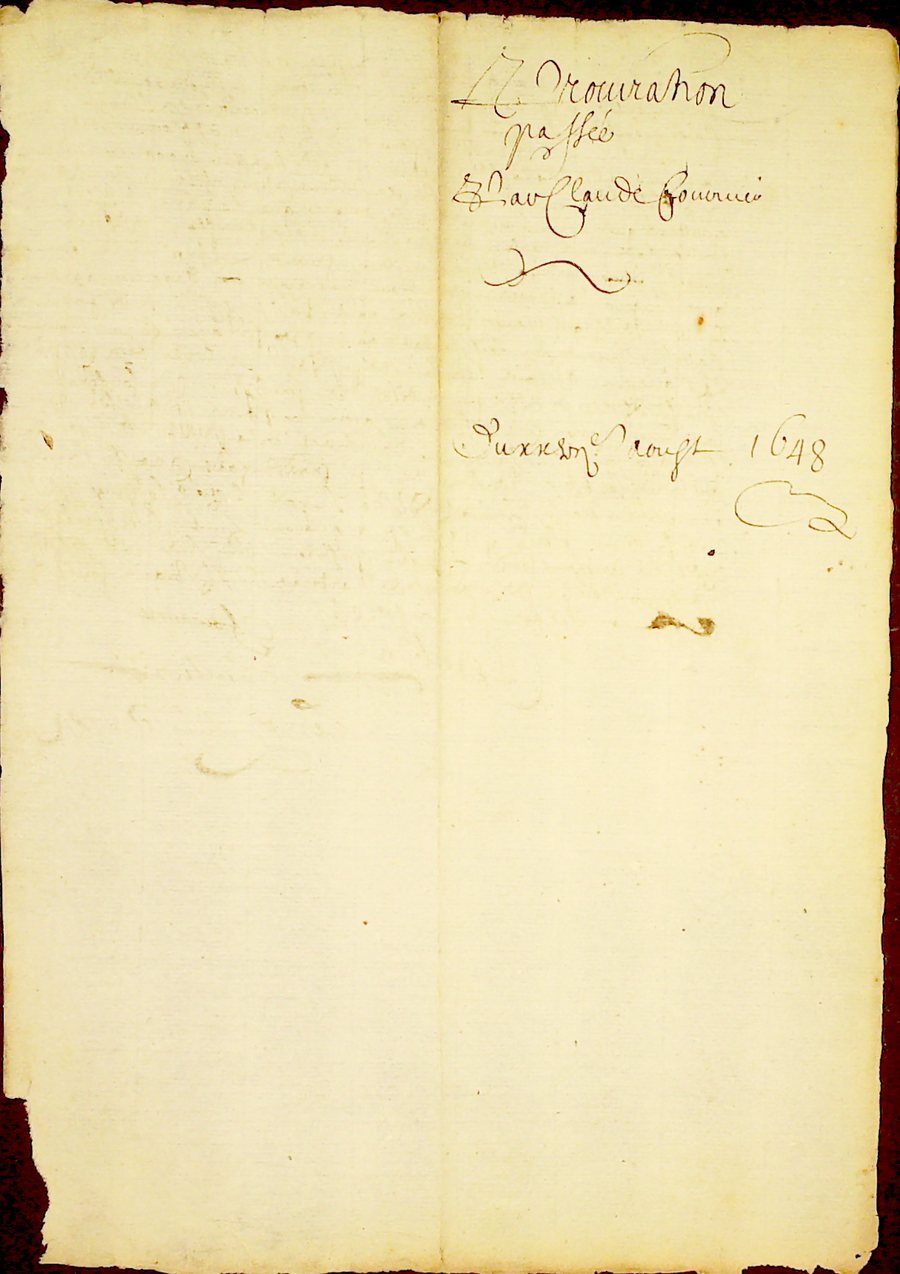 Procuration
passée
Par Claude Fournier
aoust 1648